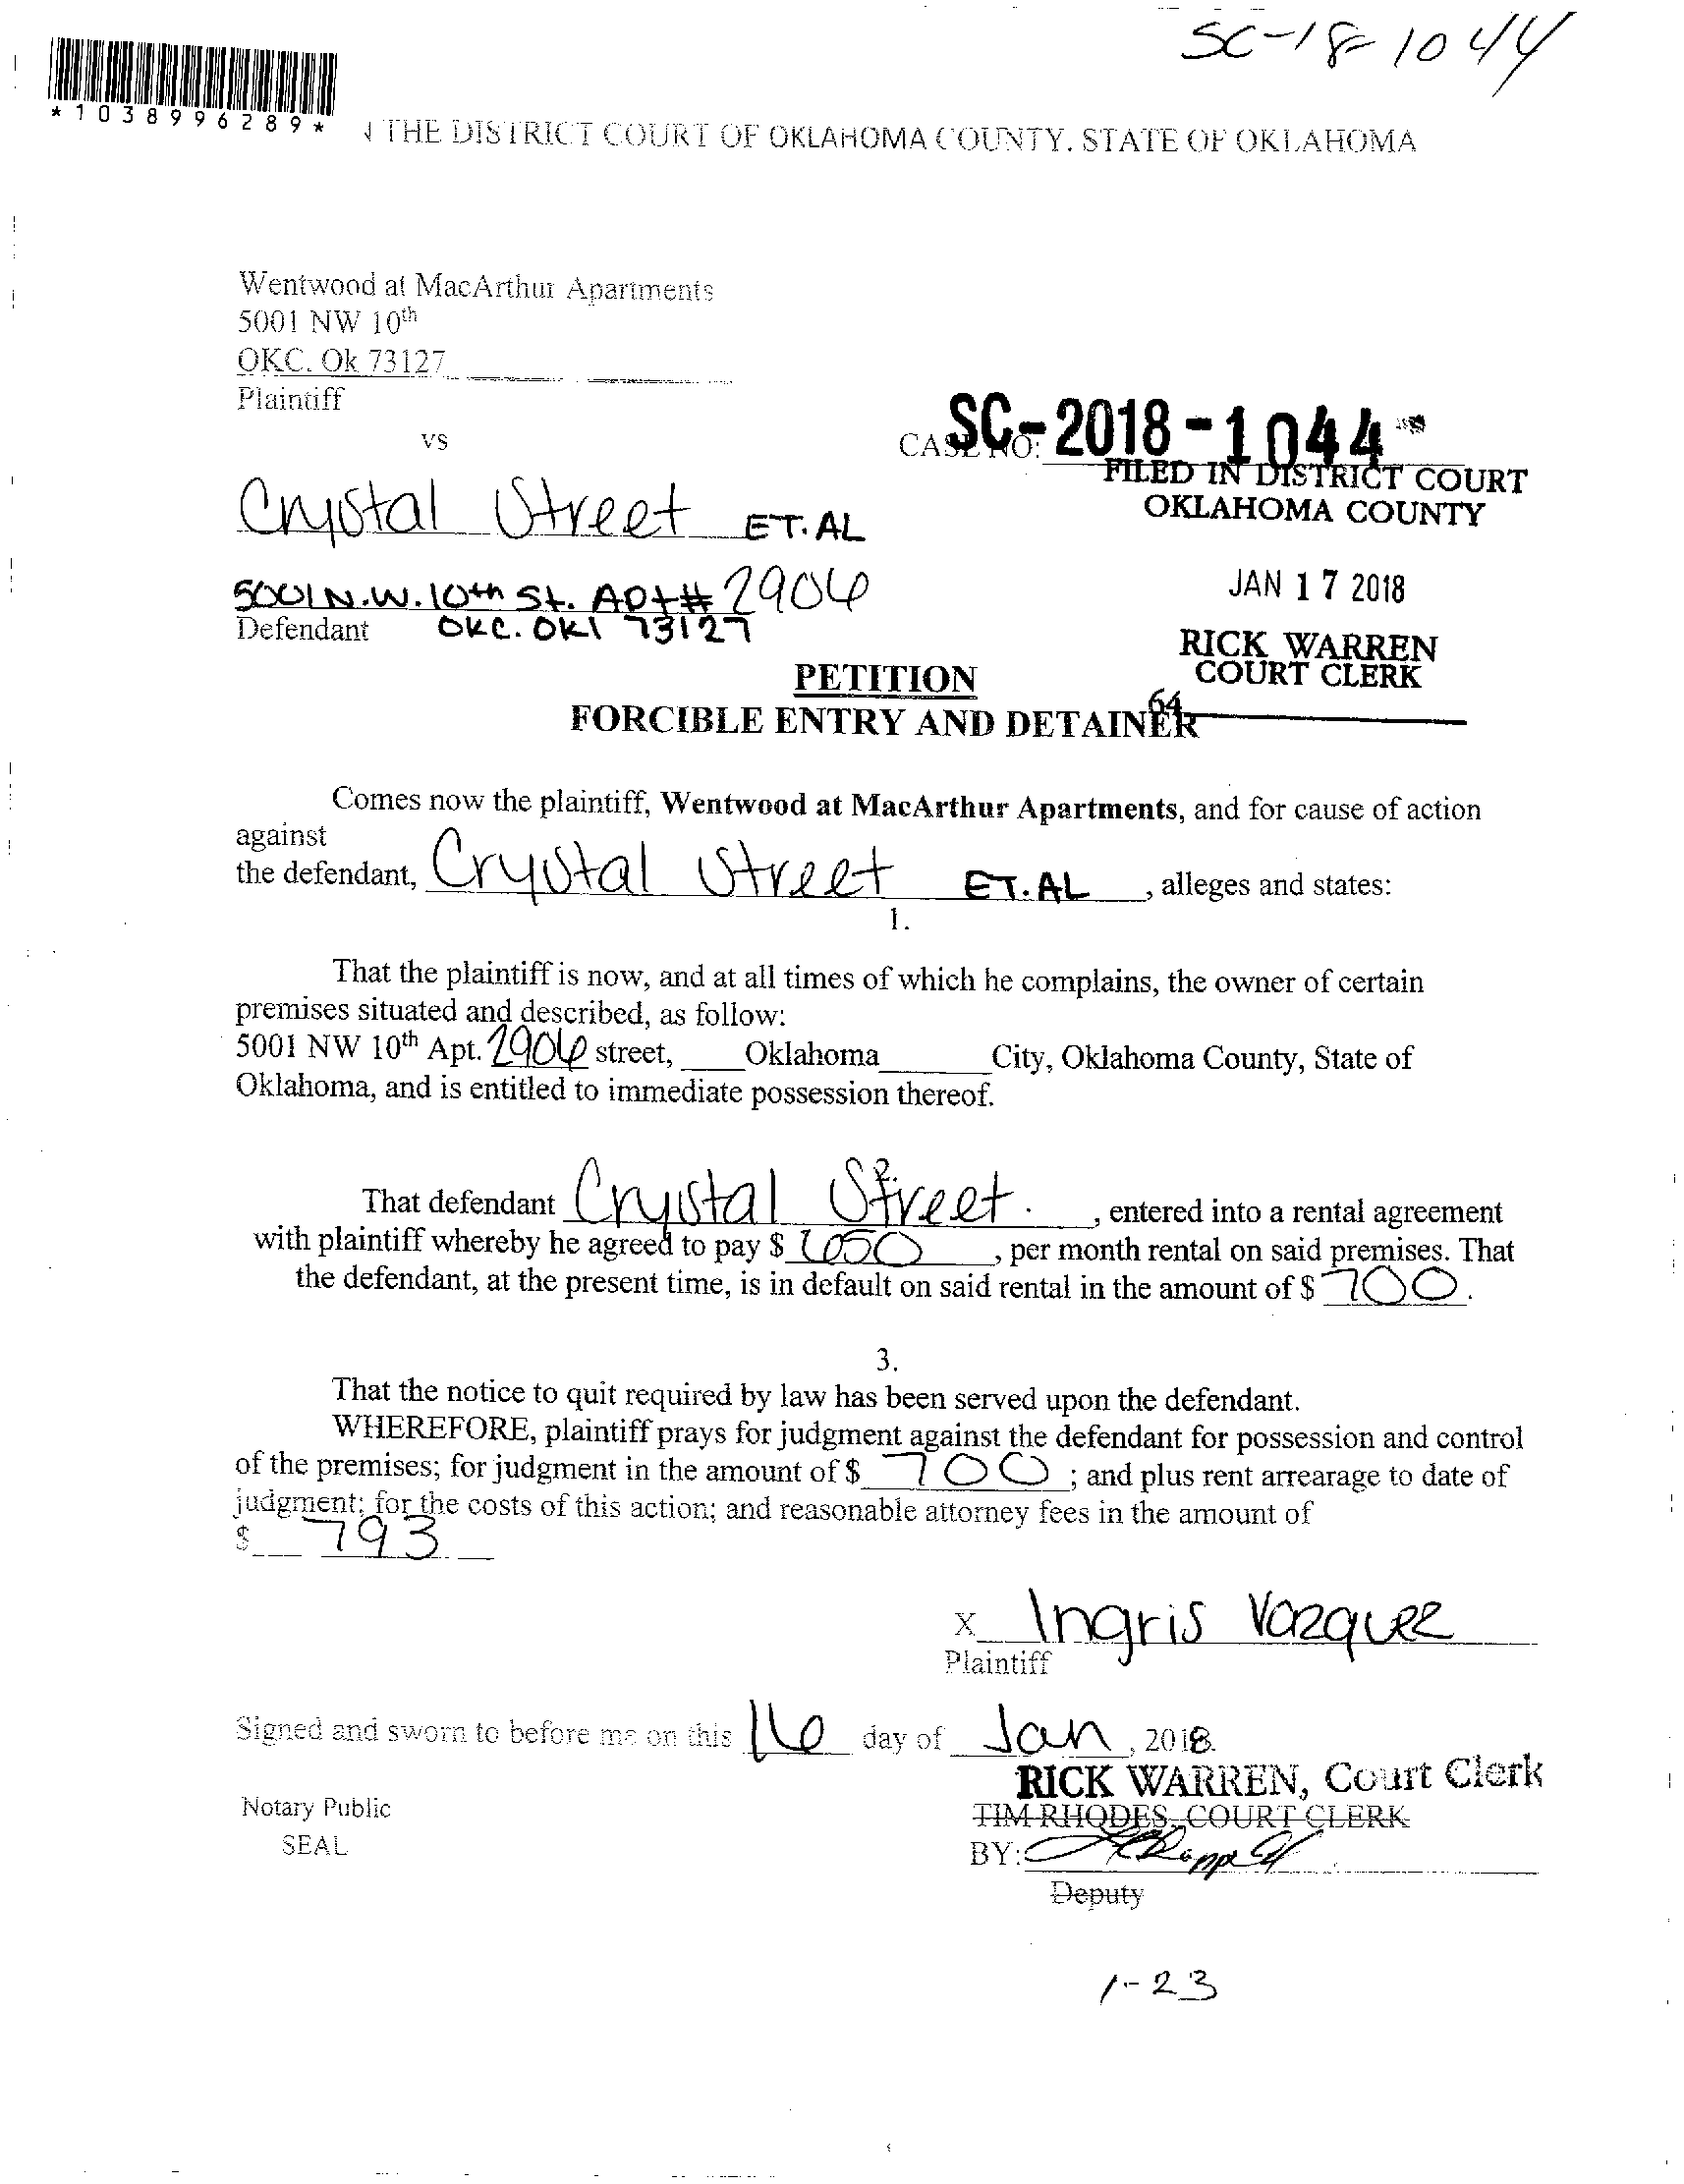 SC-18-1044
*1038996289*
N THE DISTRICT COURT OF OKLAHOMA COUNTY, STATE OF OKLAHOMA
Wentwood at MacArthur Apartments
5001 NW 10th
OKC. Ok 73127
Plaintiff
vs
CASE NO: SC-2018-1044
FILED IN DISTRICT COURT
OKLAHOMA COUNTY
Crystal Street ET.AL
JAN 17 2018
5001 N.W. 10th St. Apt# 2906
Defendant OKC. OKl 73127
RICK WARREN
COURT CLERK
64
PETITION
FORCIBLE ENTRY AND DETAINER
Comes now the plaintiff, Wentwood at MacArthur Apartments, and for cause of action
against
the defendant, Crystal Street ET.AL , alleges and states:
1.
That the plaintiff is now, and at all times of which he complains, the owner of certain
premises situated and described, as follow:
5001 NW 10th Apt. 2906 street, Oklahoma City, Oklahoma County, State of
Oklahoma, and is entitled to immediate possession thereof.
That defendant Crystal Street. , entered into a rental agreement
with plaintiff whereby he agreed to pay $ 650 , per month rental on said premises. That
the defendant, at the present time, is in default on said rental in the amount of $ 700.
3.
That the notice to quit required by law has been served upon the defendant.
WHEREFORE, plaintiff prays for judgment against the defendant for possession and control
of the premises; for judgment in the amount of $ 700 ; and plus rent arrearage to date of
judgment; for the costs of this action; and reasonable attorney fees in the amount of
$ 793
X Ingris Vazquez
Plaintiff
Signed and sworn to before me on this 16 day of Jan , 2018.
RICK WARREN, Court Clerk
Notary Public
TIM RHODES, COURT CLERK
SEAL
BY:
Deputy
1-23